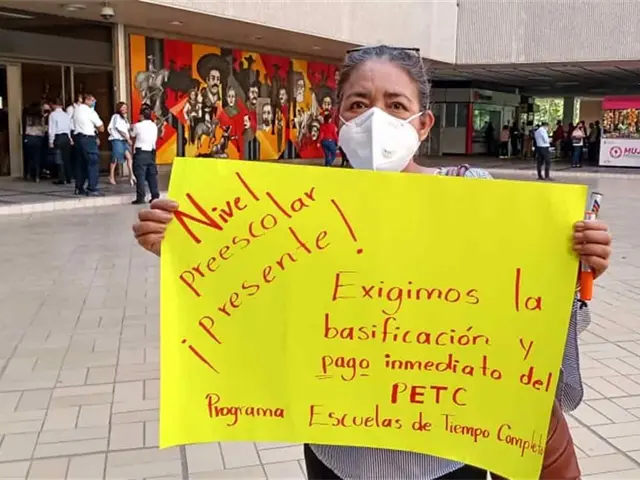 Nivel
preescolar
¡presente!
Exigimos la
basificación y
pago inmediato del
PETC
Programa Escuelas de Tiempo Completo
MUJ